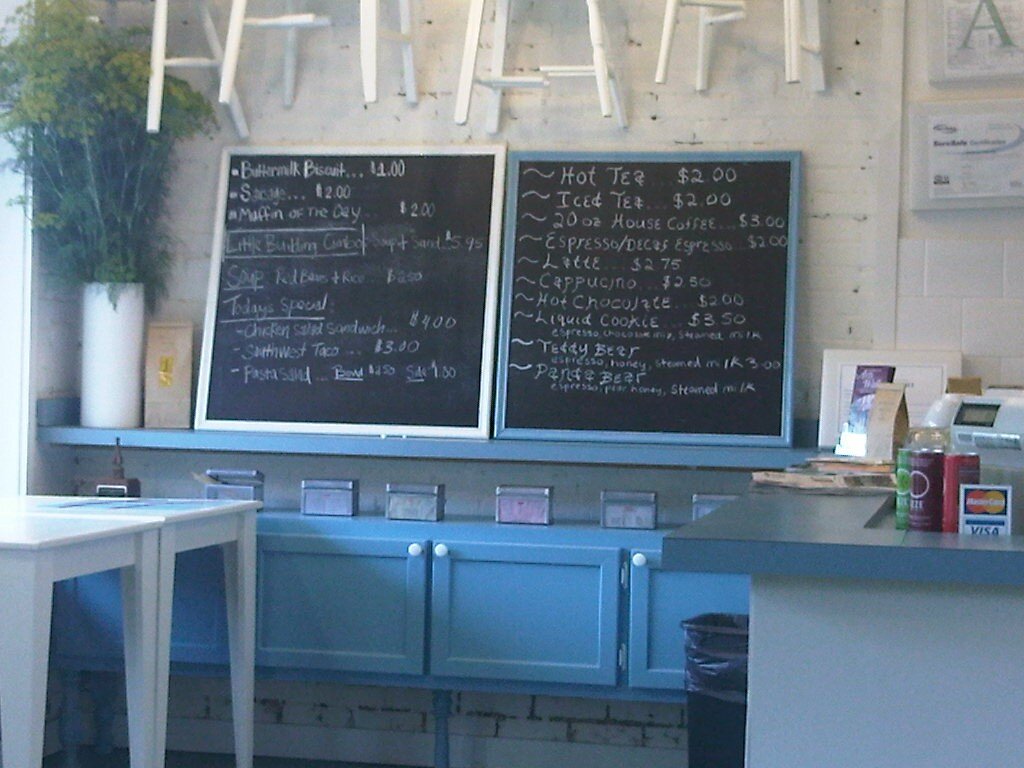 Buttermilk Biscuit... $1.00
Sausage... $2.00
Muffin Of The Day... $2.00
Little Building Combo Soup & Sand. $5.95
Soup Red Beans & Rice... $2.50
Today's Special
- Chicken Salad Sandwich... $4.00
- Southwest Taco... $3.00
- Pasta Salad... Bowl $2.50 Side $1.00
~ Hot Tea... $2.00
~ Iced Tea... $2.00
~ 20 oz House Coffee.. $3.00
~ Espresso/Decaf Espresso... $2.00
~ Latte... $2.75
~ Cappucino... $2.50
~ Hot Chocolate... $2.00
~ Liquid Cookie... $3.50
espresso, chocolate mix, steamed milk
~ Teddy Bear
espresso, honey, steamed milk 3.00
~ Panda Bear
espresso, pear honey, steamed milk
A
ServSafe Certification
MasterCard
VISA